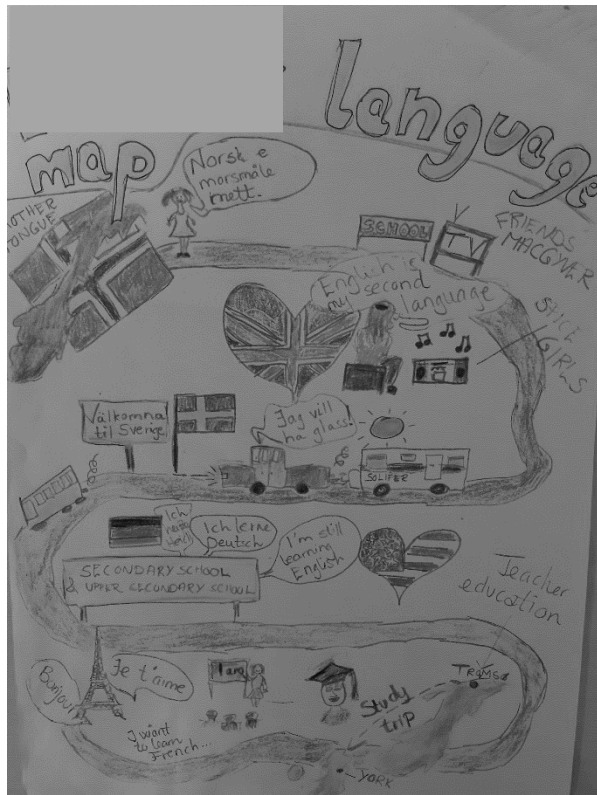 language
map
Norsk e
morsmåle
mett.
MOTHER
TONGUE
SCHOOL
TV
FRIENDS
MACGYVER
English is
my second
language
GIRLS
Välkomna
til Sverige
Jag vill
ha glass!
SOLIFER
Ich
Ich lerne
Deutsch
I'm still
learning
English
SECONDARY SCHOOL
& UPPER SECONDARY SCHOOL
Teacher
education
Bonjour
Je t'aime
I want
to learn
French...
Study
trip
TROMSØ
YORK